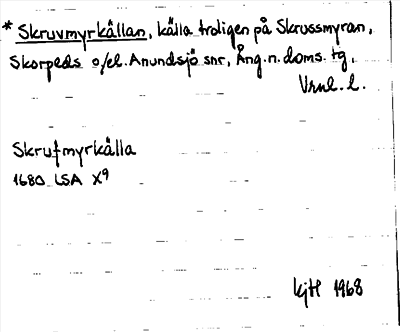 * Skruvmyrkällan, källa troligen på Skrussmyran,
Skorpeds o/el. Anundsjö snr, Ång. n. doms. tg,
Vnl. l.
Skrufmyrkälla
1680 LSA X9
1968